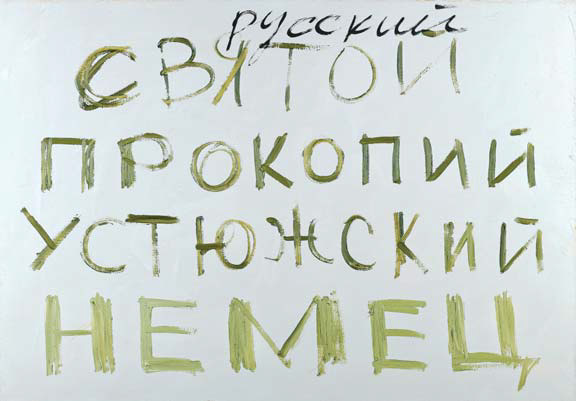 русский
СВЯТОЙ
ПРОКОПИЙ
УСТЮЖСКИЙ
НЕМЕЦ